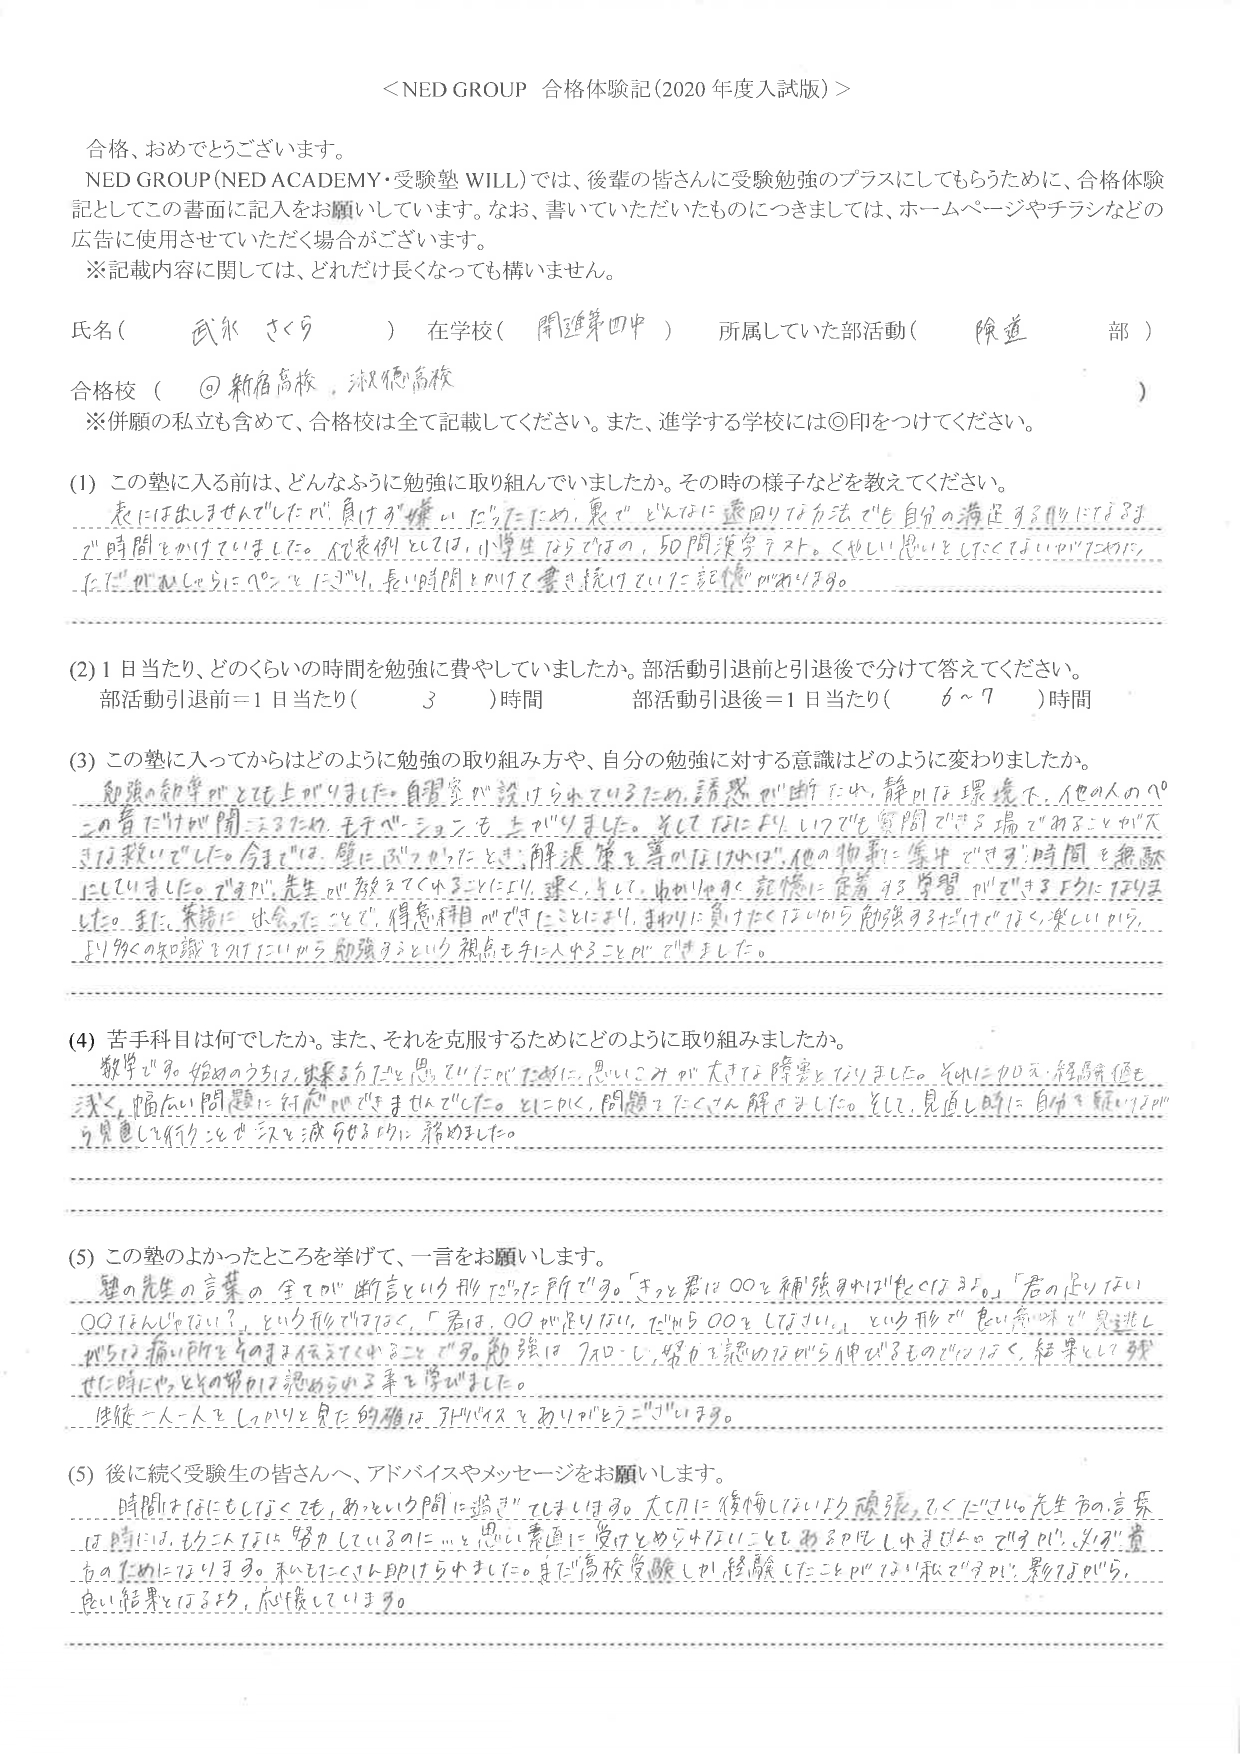 ＜NED GROUP 合格体験記（2020 年度入試版）＞
合格、おめでとうございます。
NED GROUP（NED ACADEMY・受験塾 WILL）では、後輩の皆さんに受験勉強のプラスにしてもらうために、合格体験
記としてこの書面に記入をお願いしています。なお、書いていただいたものにつきましては、ホームページやチラシなどの
広告に使用させていただく場合がございます。
※記載内容に関しては、どれだけ長くなっても構いません。
氏名（ 武永 さくら ） 在学校（ 開進第四中 ） 所属していた部活動（ 険道 部 ）
合格校 （ ◎新宿高校 . 淑徳高校 ）
※併願の私立も含めて、合格校は全て記載してください。また、進学する学校には◎印をつけてください。
(1) この塾に入る前は、どんなふうに勉強に取り組んでいましたか。その時の様子などを教えてください。
表には出しませんでしたが、負けず嫌いだったため、裏でどんなに遠回りな方法でも自分の満足する形になるま
で時間をかけていました。代表例としては、小学生ならではの、50問漢字テスト。くやしい思いをしたくないがために、
ただがむしゃらにペンをにぎり、長い時間をかけて書き続けていた記憶があります。
(2) 1 日当たり、どのくらいの時間を勉強に費やしていましたか。部活動引退前と引退後で分けて答えてください。
部活動引退前＝1 日当たり（ 3 ）時間 部活動引退後＝1 日当たり（ 6～7 ）時間
(3) この塾に入ってからはどのように勉強の取り組み方や、自分の勉強に対する意識はどのように変わりましたか。
勉強の効率がとても上がりました。自習室が設けられているため、誘惑が断たれ、静かな環境下、他の人のペ
ンの音だけが聞こえるため、モチベーションも上がりました。そしてなにより、いつでも質問できる場であることが大
きな救いでした。今までは、壁にぶつかったとき、解決策を導かなければ、他の物事に集中できず時間を無駄
にしていました。ですが、先生が教えてくれることにより、速く、そして、わかりやすく記憶に定着する学習ができるようになりま
した。また、英語に出会ったことで、得意科目ができたことにより、まわりに負けたくないから勉強するだけでなく、楽しいから、
より多くの知識をつけたいから勉強するという視点も手に入れることができました。
(4) 苦手科目は何でしたか。また、それを克服するためにどのように取り組みましたか。
数学です。始めのうちは、出来る方だと思っていたがために、思いこみが大きな障害となりました。それに加え、経験値も
浅く、幅広い問題に対応ができませんでした。とにかく、問題をたくさん解きました。そして、見直し時に自分を疑いなが
ら見直しを行うことでミスを減らせるように務めました。
(5) この塾のよかったところを挙げて、一言をお願いします。
塾の先生の言葉の全てが断言という形だった所です。「きっと君は〇〇を補強すれば良くなるよ。」「君の足りない
〇〇なんじゃない？」という形ではなく、「君は、〇〇が足りない。だから〇〇をしなさい。」という形で良い意味で見逃し
がちな痛い所をそのまま伝えてくれることです。勉強はフォローし、努力を認めながら伸びるものではなく、結果として残
せた時にやっとその努力は認められる事を学びました。
生徒一人一人をしっかりと見た的確なアドバイスをありがとうございます。
(5) 後に続く受験生の皆さんへ、アドバイスやメッセージをお願いします。
時間はなにもしなくても、あっという間に過ぎてしまいます。大切に後悔しないよう頑張ってください。先生方の言葉
は時には、もうこんなに努力しているのに…と思い素直に受けとめられないこともあるかもしれません。ですが、必ず貴
方のためになります。私もたくさん助けられました。まだ高校受験しか経験したことがない私ですが、影ながら、
良い結果となるよう、応援しています。